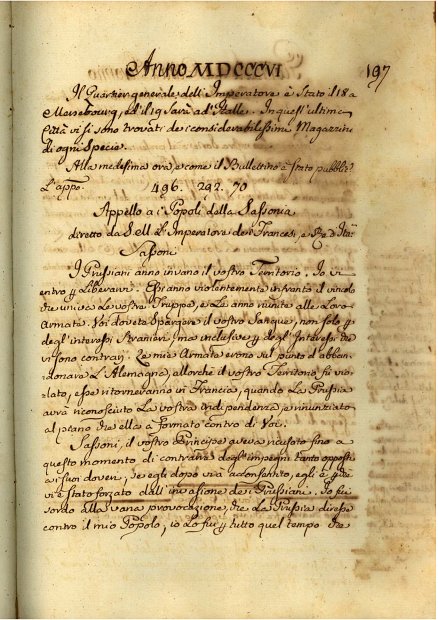 Anno MDCCCVI
197
Il Quartier generale dell'Imperatore è stato il 18 a
Mersebourg, ed il 19 sarà ad Halle. In quest'ultima
Città vi si sono trovati de considerabilissimi Magazzini
di ogni Specie.
Alla medesima ora, e come il Bullettino è stato pubbli-
L'appo. 496. 292. 70
Appello a i Popoli della Sassonia
diretto da Sell L'Imperatore de i Francesi, e Re d'Ita
Sassoni
I Prussiani anno invano il vostro Territorio. Io vi
entro p Liberarvi. Essi anno violentemente infranto il vincolo
che univa le vostre Truppe, e le anno riunite alla Loro
Armata. Voi dovete spargere il vostro Sangue, non solo p
degl'interessi stranieri, ma inclusive p degl'Interessi che
vi sono contrarj. Le mie Armate erono sul punto d'abban-
donare L'Alemagna, allorchè il vostro Territorio fù vio-
lato, esse ritorneranno in Francia, quando La Prussia
avrà riconosciuto La vostra indipendenza, e rinunziato
al piano che ella à formato contro di Voi.
Sassoni, il vostro Principe aveva ricusato fino a
questo momento di contrarre degl'impegni tanto opposti
a i suoi doveri, se egli dopo vi à acconsentito, egli è
vi è stato forzato dall'invasione de i Prussiani. Io fui
sordo alla vana provocazione, che La Prussia diresse
contro il mio Popolo, io Lo fui p tutto quel tempo che